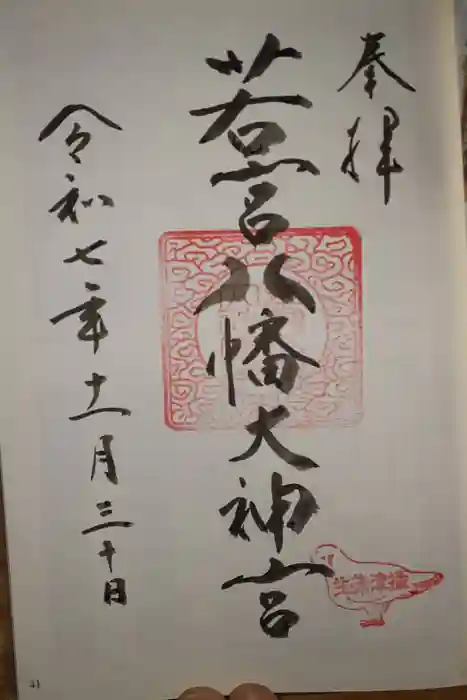 奉拝
若宮八幡大神宮
令和七年十一月三十日
摂津池生
41